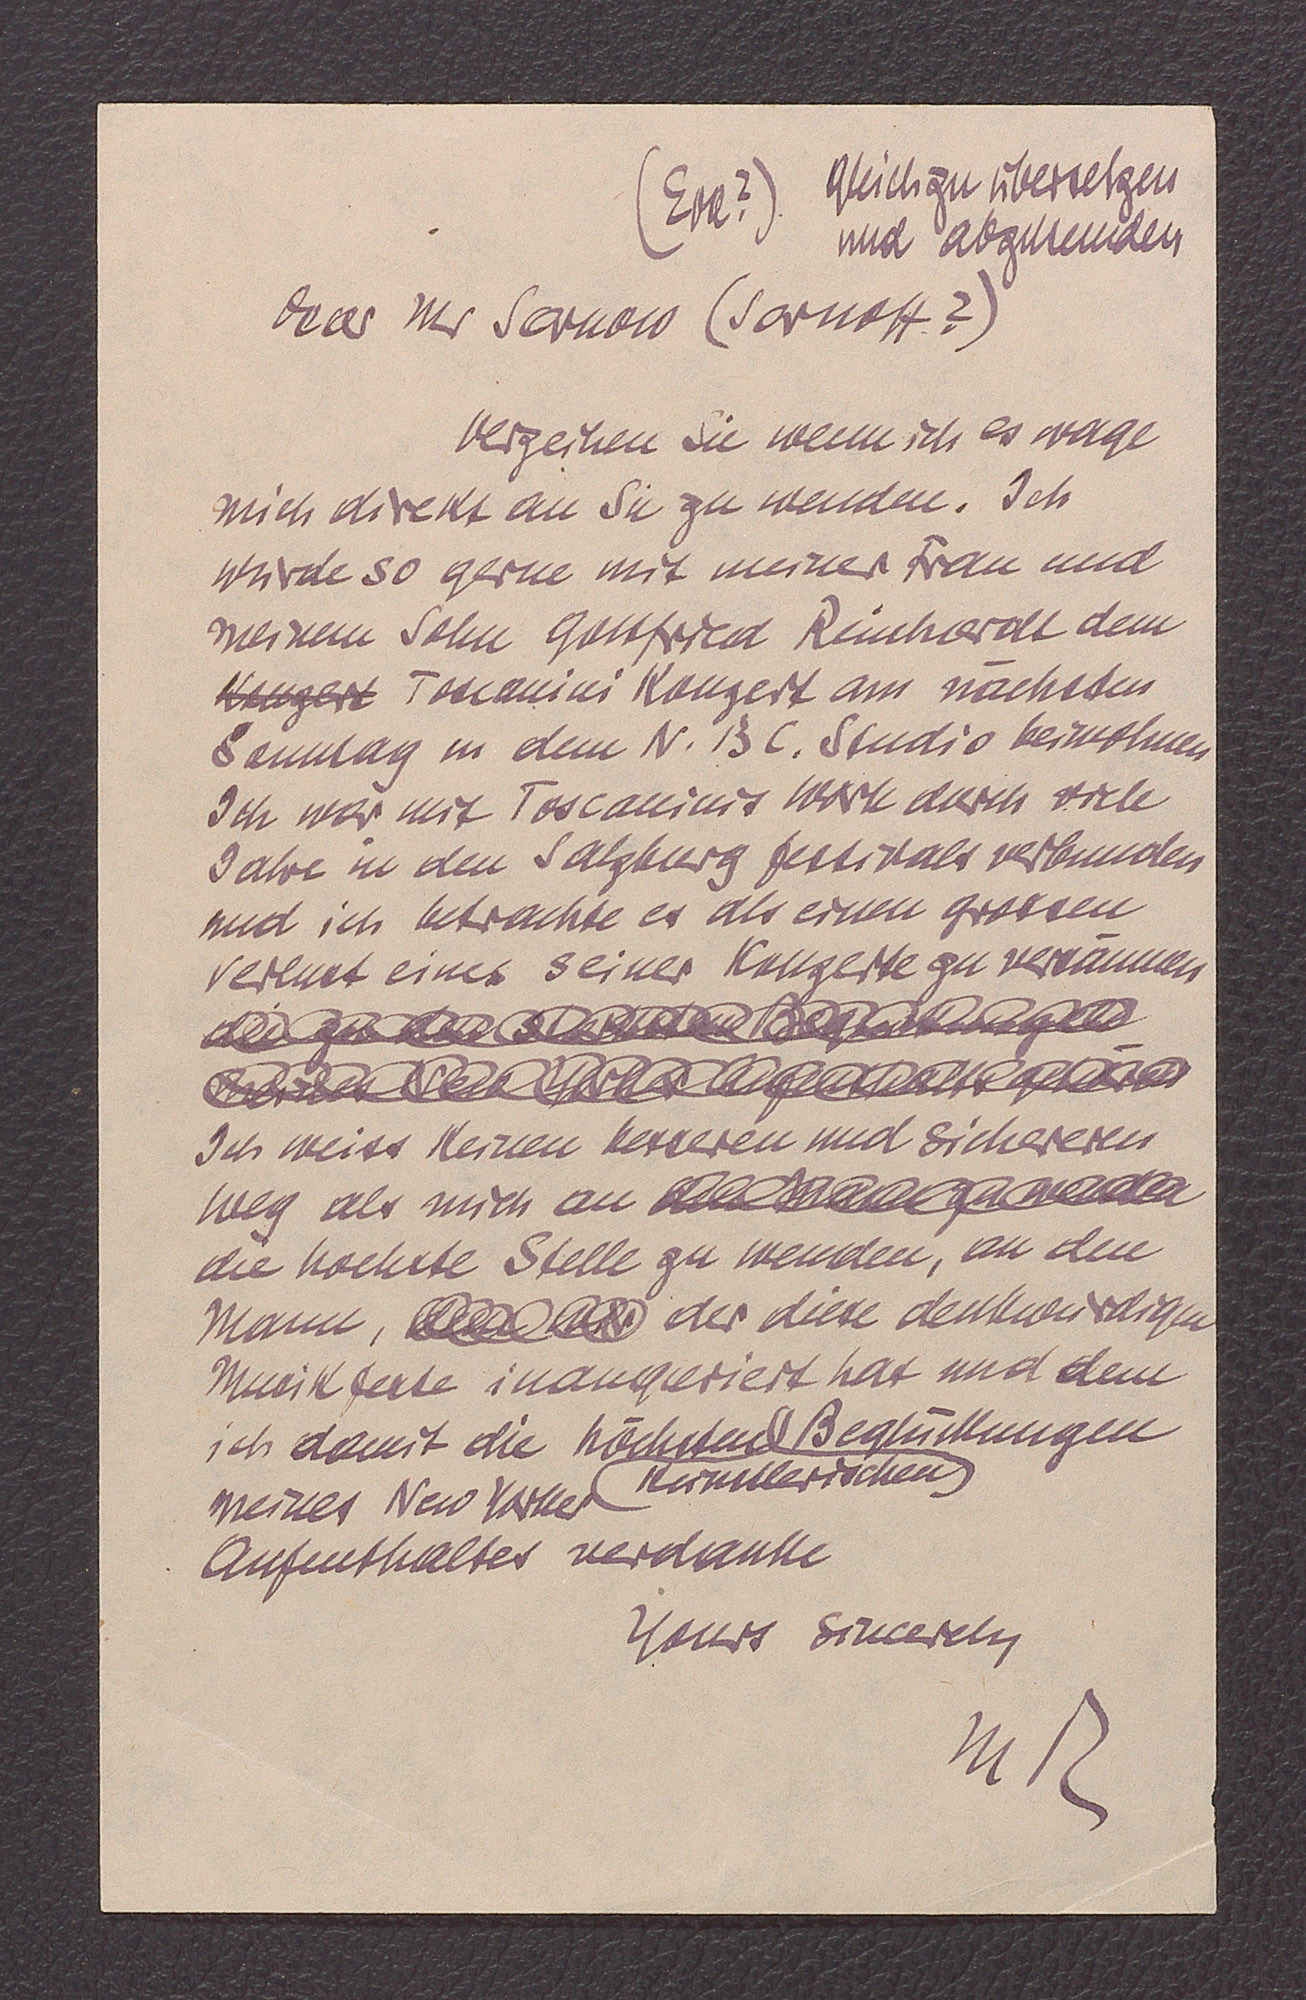 (Eva?) gleich zu übersetzen
und abzusenden
Dear Mr Sarnow (Sarnoff?)
Verzeihen Sie wenn ich es wage
mich direkt an Sie zu wenden. Ich
würde so gerne mit meiner Frau und
meinem Sohn Gottfried Reinhardt dem
Konzert Toscanini Konzert am nächsten
Sonntag in dem N. B C. Studio beiwohnen
Ich war mit Toscaninis Werk durch viele
Jahre in den Salzburg festivals verbunden
und ich betrachte es als einen grossen
Verlust eines seiner Konzerte zu versäumen
die zu den Beglückungen
meines New Yorker Aufenthalts gehören
Ich weiss keinen besseren und sichereren
Weg als mich an den Mann zu wenden
die hoechste Stelle zu wenden, an den
Mann, der diese denkwürdigen
Musikfeste inauguriert hat und dem
ich damit die höchsten Beglückungen
künstlerischen
meines New Yorker
Aufenthaltes verdanke
Yours sincerely
M R